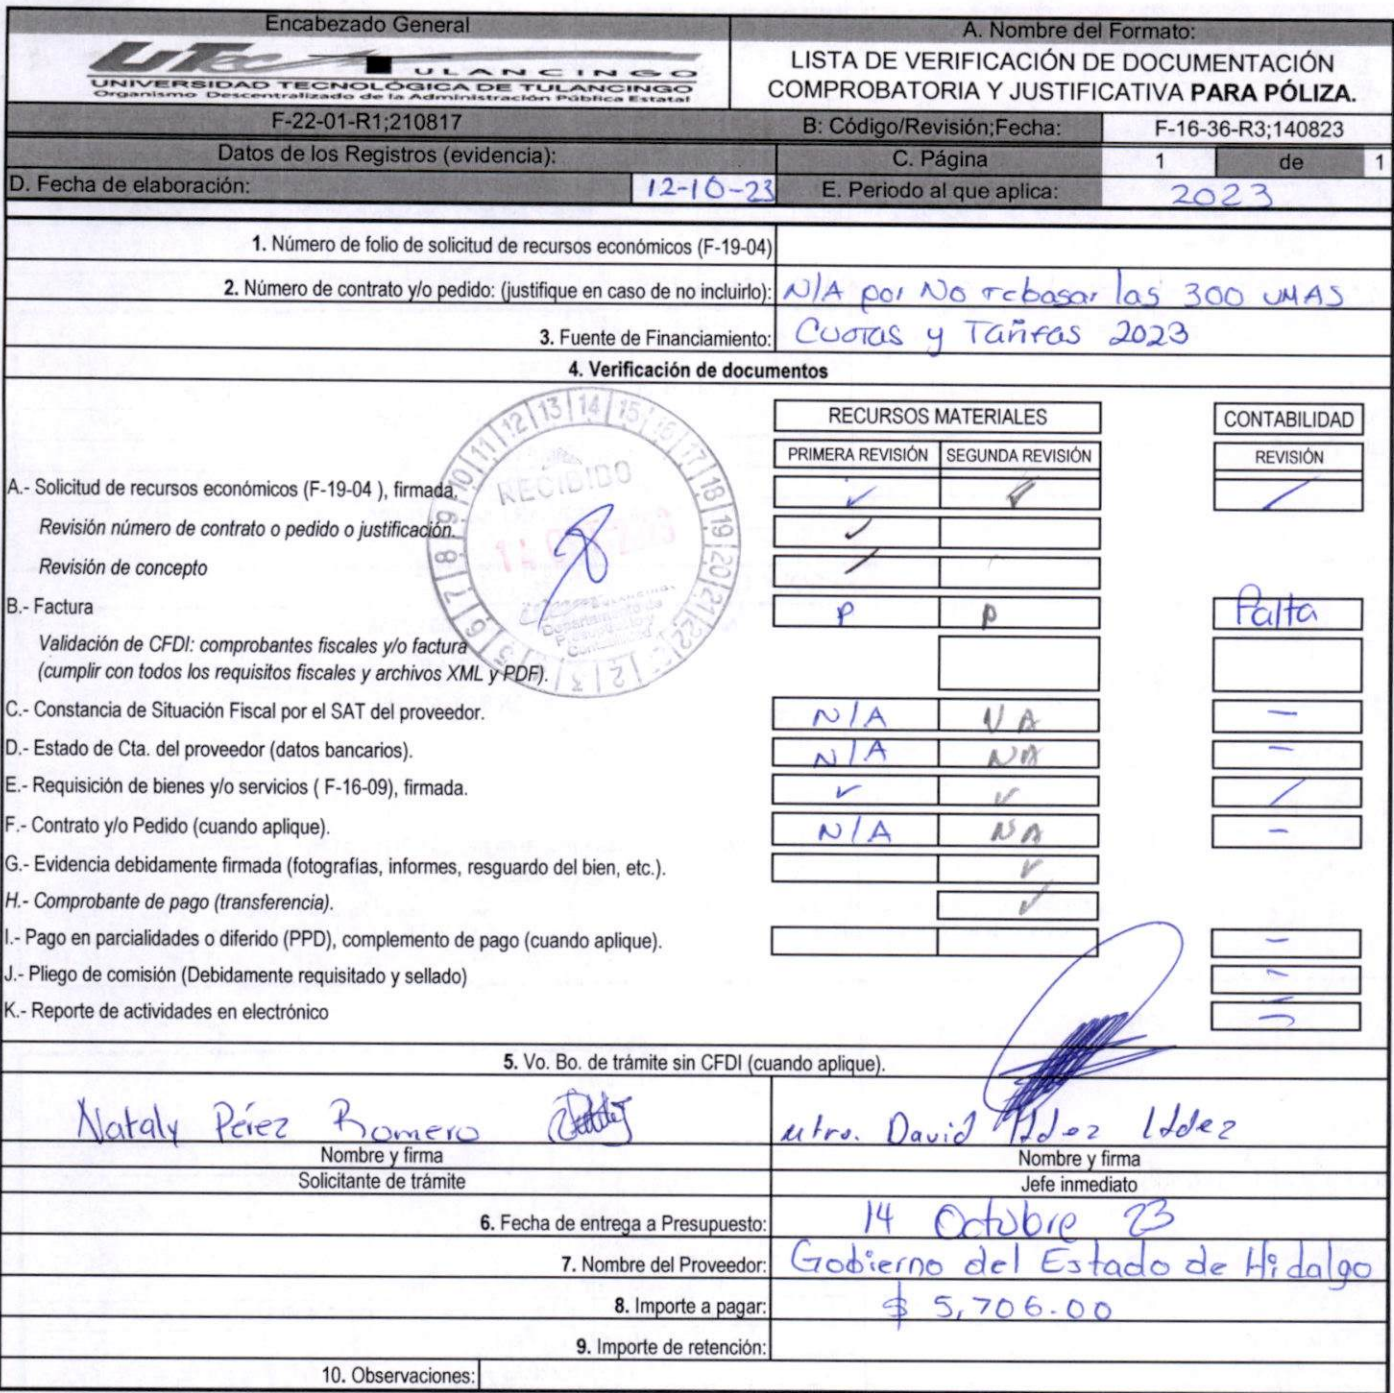 Encabezado General
A. Nombre del Formato:
UTec TULANCINGO
UNIVERSIDAD TECNOLÓGICA DE TULANCINGO
Organismo Descentralizado de la Administración Pública Estatal
LISTA DE VERIFICACIÓN DE DOCUMENTACIÓN
COMPROBATORIA Y JUSTIFICATIVA PARA PÓLIZA.
F-22-01-R1;210817
B: Código/Revisión;Fecha: F-16-36-R3;140823
Datos de los Registros (evidencia):
C. Página 1 de 1
D. Fecha de elaboración: 12-10-23
E. Periodo al que aplica: 2023
1. Número de folio de solicitud de recursos económicos (F-19-04)
2. Número de contrato y/o pedido: (justifique en caso de no incluirlo): N/A por No rebasar las 300 UMAS
3. Fuente de Financiamiento: Cuotas y Tarifas 2023
4. Verificación de documentos
RECURSOS MATERIALES CONTABILIDAD
PRIMERA REVISIÓN SEGUNDA REVISIÓN REVISIÓN
A.- Solicitud de recursos económicos (F-19-04 ), firmada. ✓ ✓ /
Revisión número de contrato o pedido o justificación. ✓
Revisión de concepto /
B.- Factura P P Falta
Validación de CFDI: comprobantes fiscales y/o factura
(cumplir con todos los requisitos fiscales y archivos XML y PDF).
C.- Constancia de Situación Fiscal por el SAT del proveedor. N/A NA —
D.- Estado de Cta. del proveedor (datos bancarios). N/A NA —
E.- Requisición de bienes y/o servicios ( F-16-09), firmada. ✓ ✓ /
F.- Contrato y/o Pedido (cuando aplique). N/A NA —
G.- Evidencia debidamente firmada (fotografías, informes, resguardo del bien, etc.). ✓
H.- Comprobante de pago (transferencia). ✓
I.- Pago en parcialidades o diferido (PPD), complemento de pago (cuando aplique). —
J.- Pliego de comisión (Debidamente requisitado y sellado) —
K.- Reporte de actividades en electrónico —
RECIBIDO
Departamento de
Presupuesto y
Contabilidad
5. Vo. Bo. de trámite sin CFDI (cuando aplique).
Nataly Pérez Romero
Mtro. David Hdez Hdez
Nombre y firma
Nombre y firma
Solicitante de trámite
Jefe inmediato
6. Fecha de entrega a Presupuesto: 14 Octubre 23
7. Nombre del Proveedor: Gobierno del Estado de Hidalgo
8. Importe a pagar: $ 5,706.00
9. Importe de retención:
10. Observaciones: